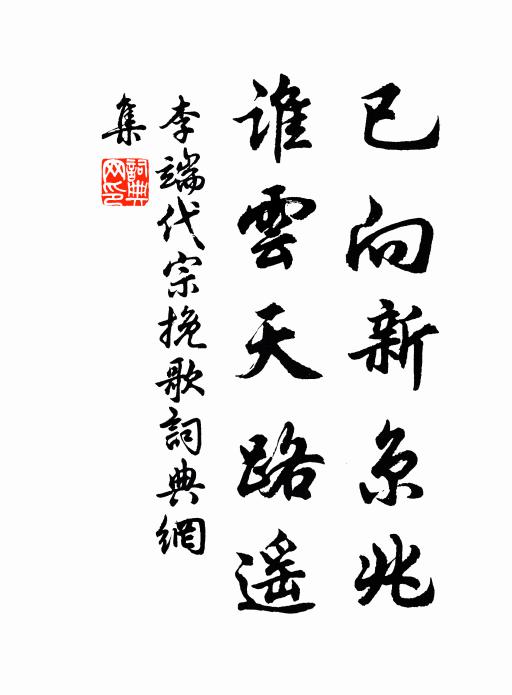 已向新京兆
誰雲天路遥
李端代宗挽歌詞典網
集
詞典网印